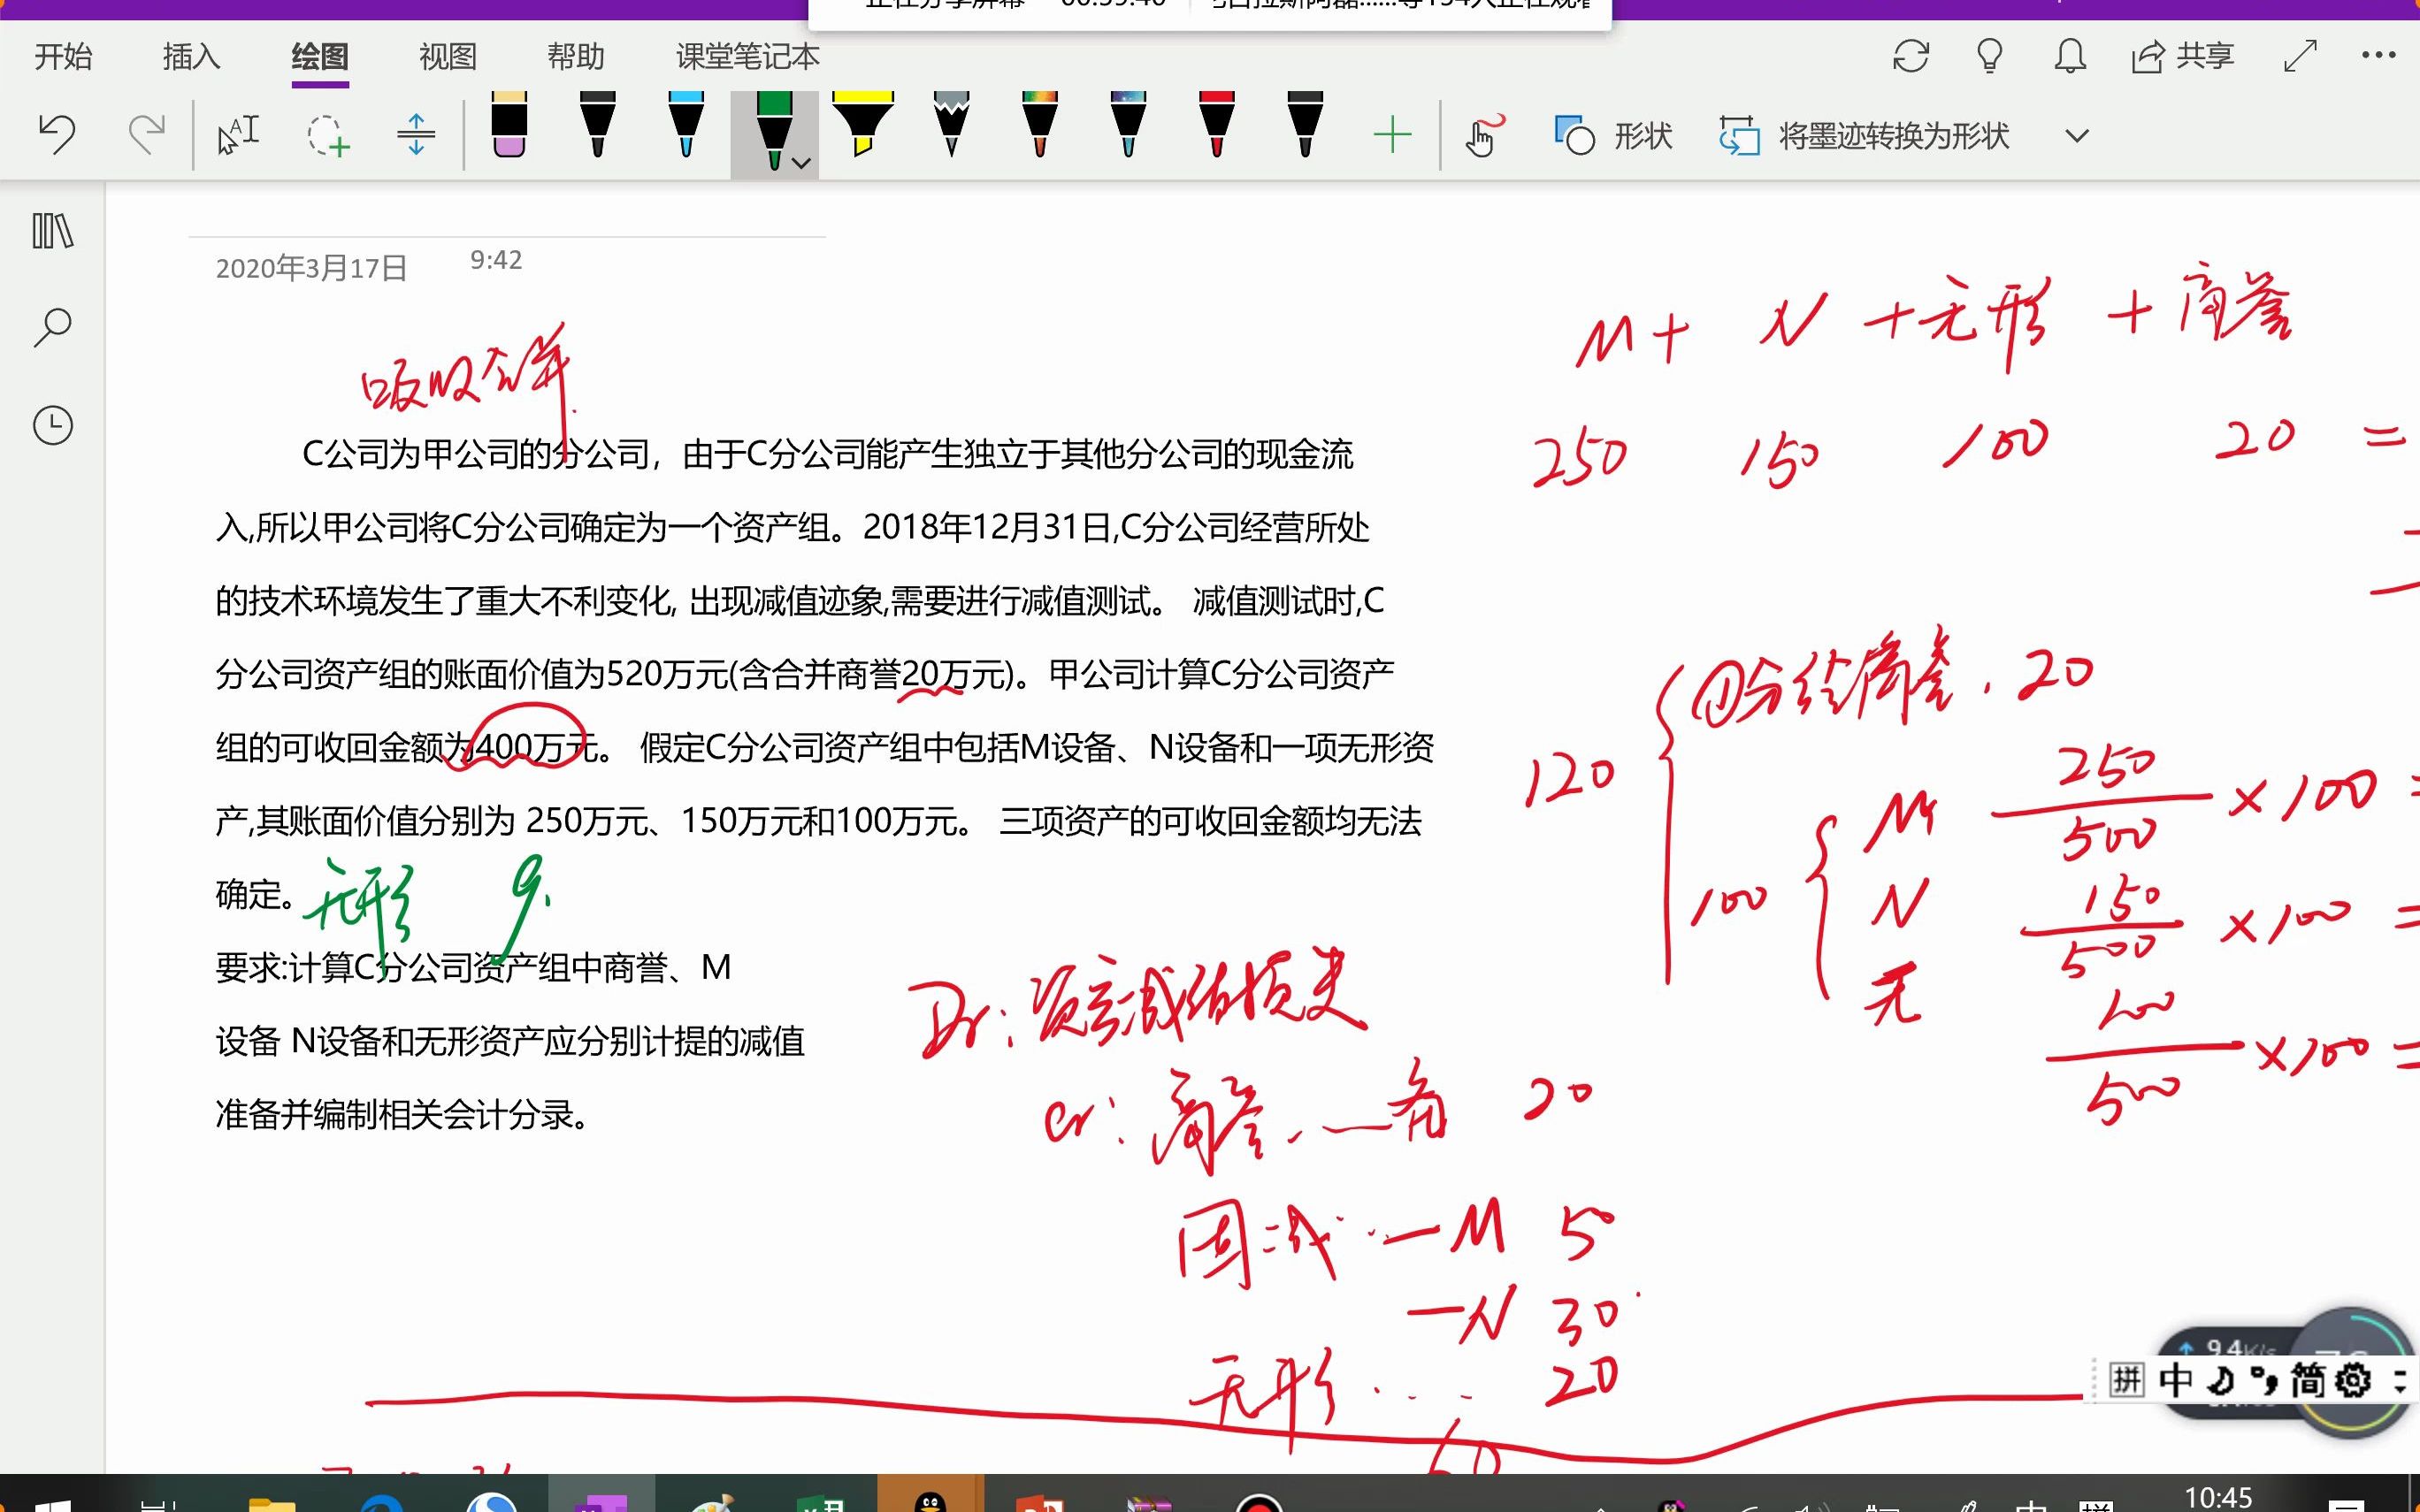 开始 插入 绘图 视图 帮助 课堂笔记本 共享
形状 将墨迹转换为形状
2020年3月17日 9:42
吸收合并
C公司为甲公司的分公司，由于C分公司能产生独立于其他分公司的现金流
入,所以甲公司将C分公司确定为一个资产组。2018年12月31日,C分公司经营所处
的技术环境发生了重大不利变化, 出现减值迹象,需要进行减值测试。 减值测试时,C
分公司资产组的账面价值为520万元(含合并商誉20万元)。甲公司计算C分公司资产
组的可收回金额为400万元。 假定C分公司资产组中包括M设备、N设备和一项无形资
产,其账面价值分别为 250万元、150万元和100万元。 三项资产的可收回金额均无法
确定。
无形
要求:计算C分公司资产组中商誉、M
设备 N设备和无形资产应分别计提的减值
准备并编制相关会计分录。
M+ N +无形 +商誉
250 150 100 20 =
120
①分给商誉. 20
100
M 250/500 ×100 =
N 150/500 ×100 =
无 100/500 ×100 =
Dr: 资产减值损失
Cr: 商誉 — 备 20
固减 — M 50
—N 30
无形 … 20
9.4K/s
拼 中 简
10:45